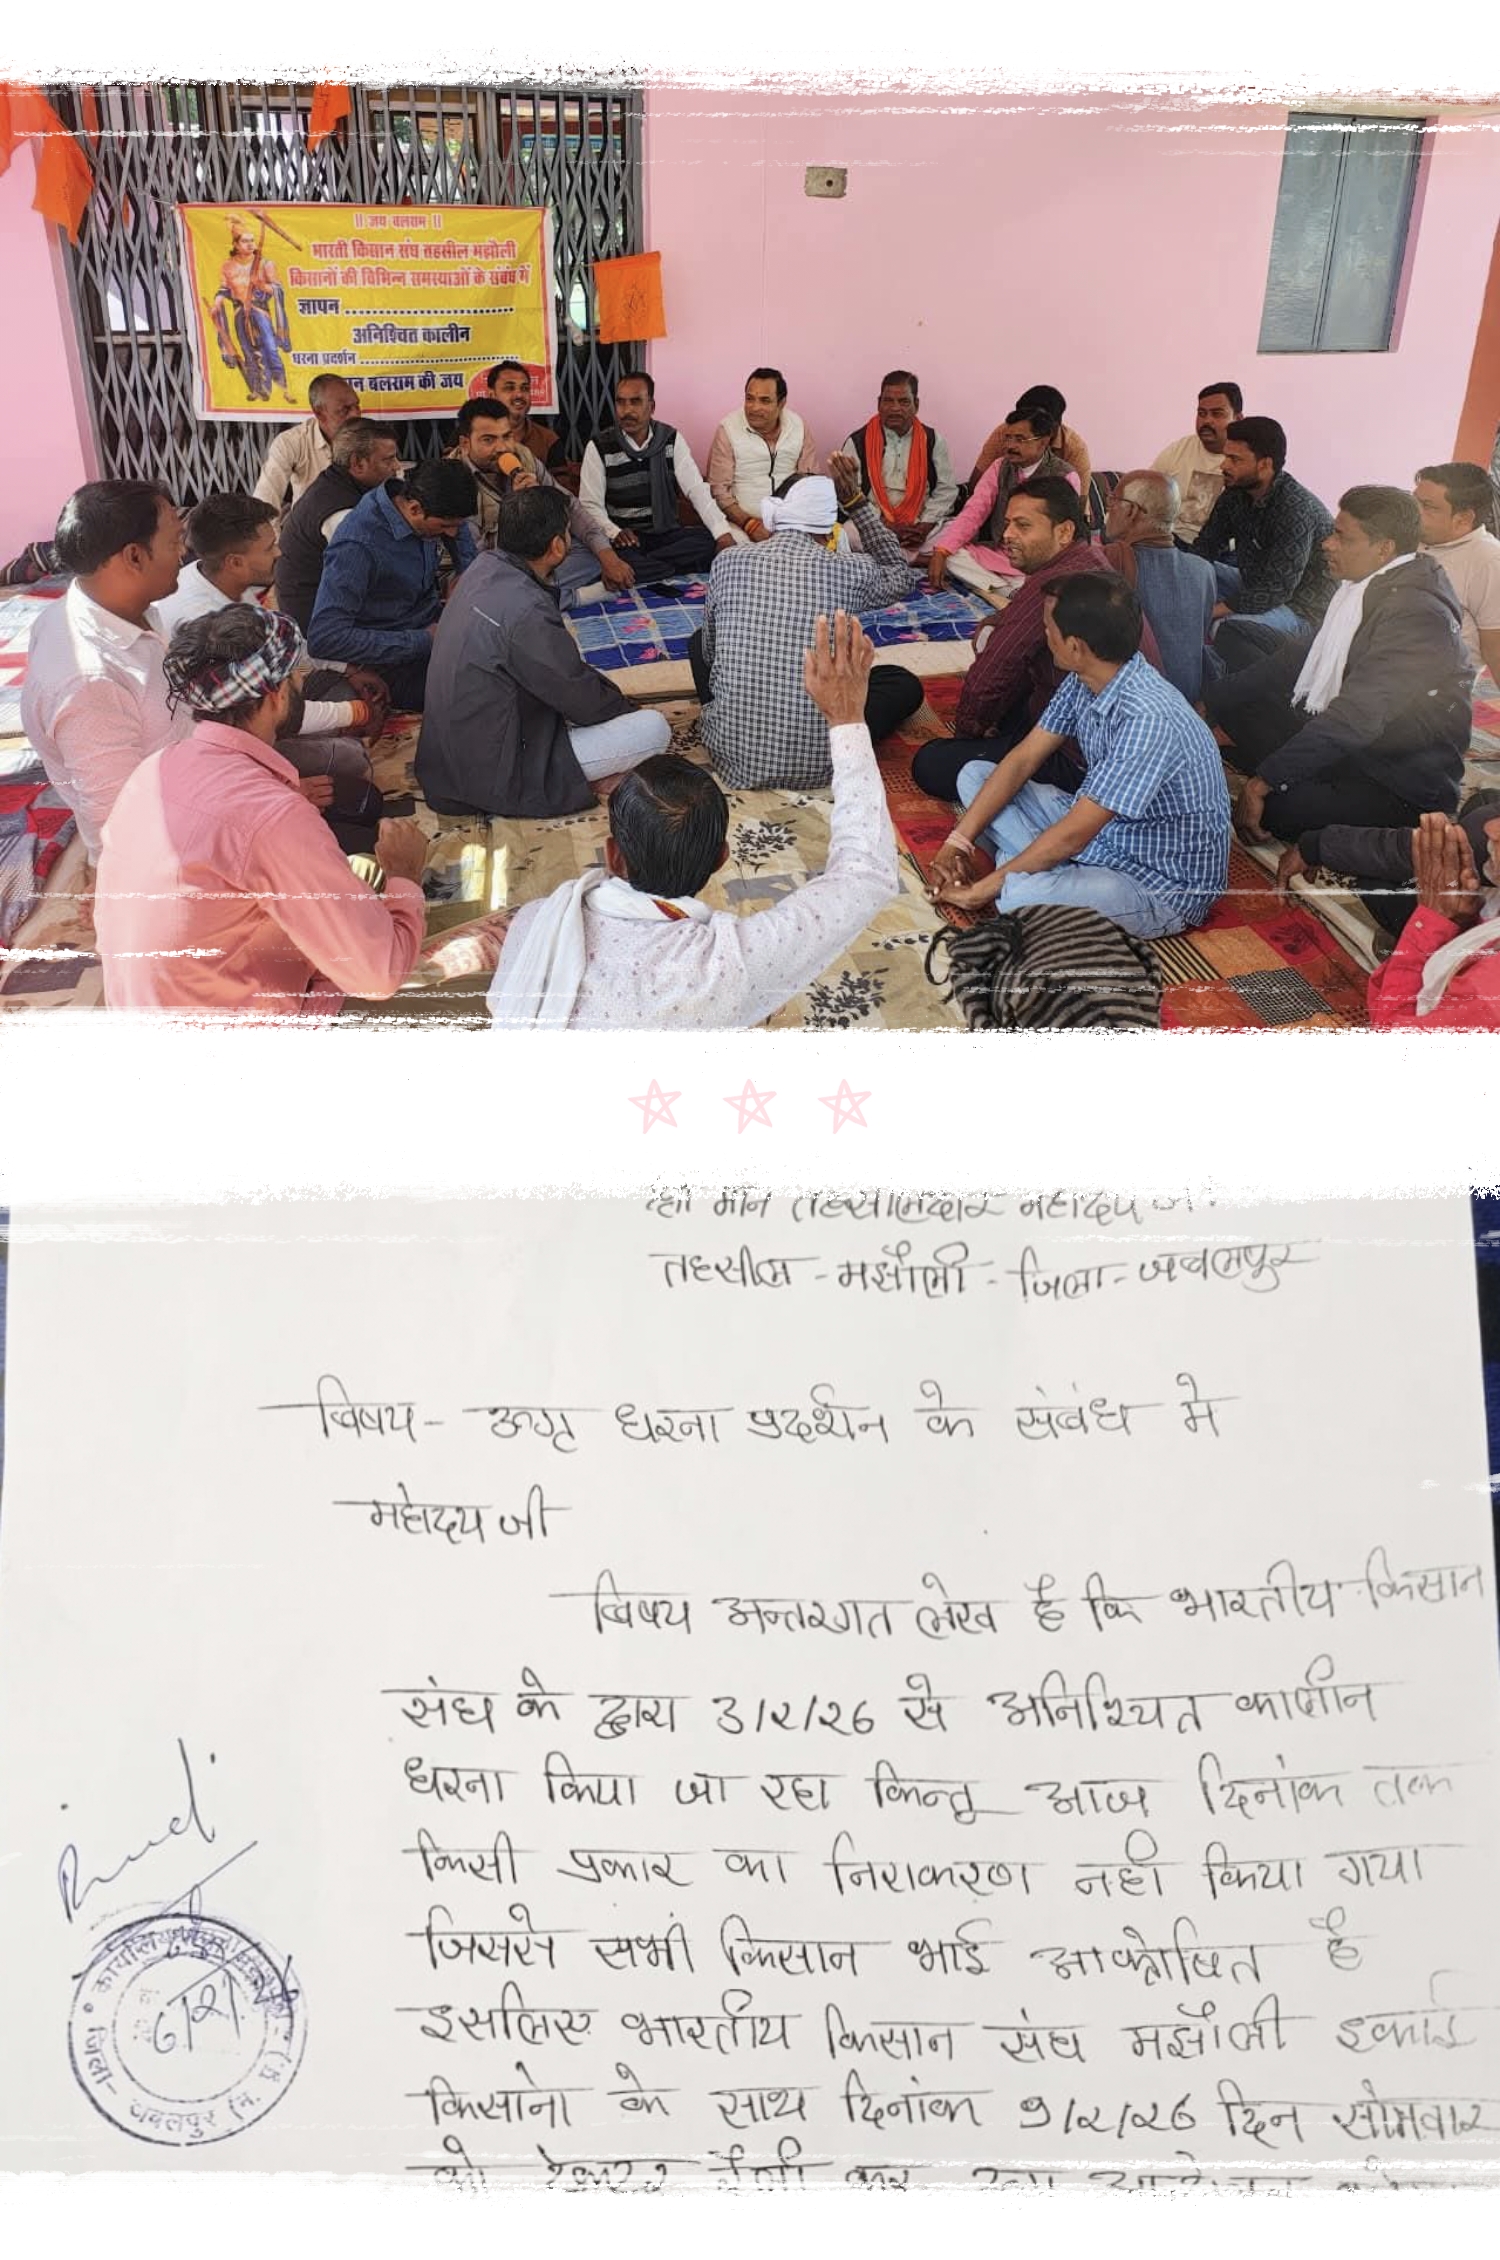 ॥ जय बलराम ॥
भारती किसान संघ तहसील मझौली
किसानों की विभिन्न समस्याओं के संबंध में
ज्ञापन ..............................
अनिश्चित कालीन
धरना प्रदर्शन ..............................
बलराम की जय
मान तहसीलदार महोदय
तहसील - मझौली - जिला - जबलपुर
विषय - उग्र धरना प्रदर्शन के संबंध मे
महोदय जी
विषय अन्तरगत लेख है कि भारतीय किसान
संघ के द्वारा 3/2/26 से अनिश्चित कालीन
धरना किया जा रहा किन्तु आज दिनांक तक
किसी प्रकार का निराकरण नही किया गया
जिससे सभी किसान भाई आक्रोषित है
इसलिए भारतीय किसान संघ मझौली इकाई
किसानो के साथ दिनांक 9/2/26 दिन सोमवार
को रैली कर
कार्यालय
जिला - जबलपुर (म. प्र.)